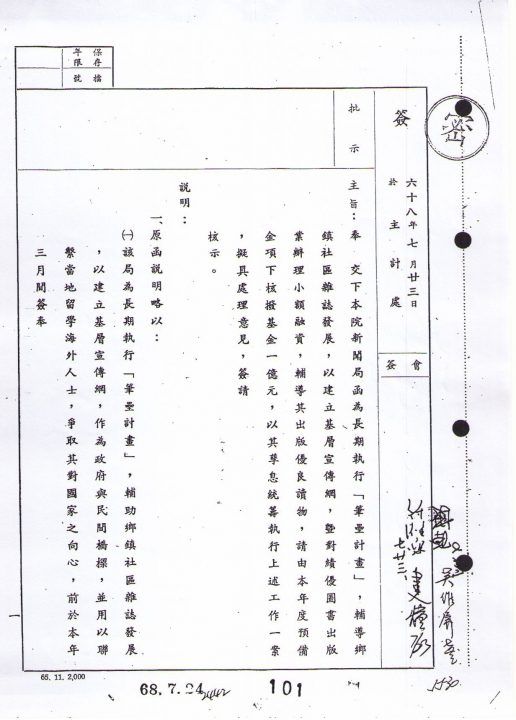 保存年限
檔號
密
簽
六十八年七月廿三日
於主計處
會簽
批示
主旨：奉　交下本院新聞局函為長期執行「筆壘計畫」，輔導鄉
鎮社區雜誌發展，以建立基層宣傳網，暨對績優圖書出版
業辦理小額融資，輔導其出版優良讀物，請由本年度預備
金項下核撥基金一億元，以其孳息統籌執行上述工作一案
，擬具處理意見，簽請
核示。
說明：
一、原函說明略以：
㈠該局為長期執行「筆壘計畫」，輔助鄉鎮社區雜誌發展
，以建立基層宣傳網，作為政府與民間橋樑，並用以聯
繫當地留學海外人士，爭取其對國家之向心，前於本年
三月間簽奉
七廿三
一
65. 11. 2,000
68.7.24
101
1530